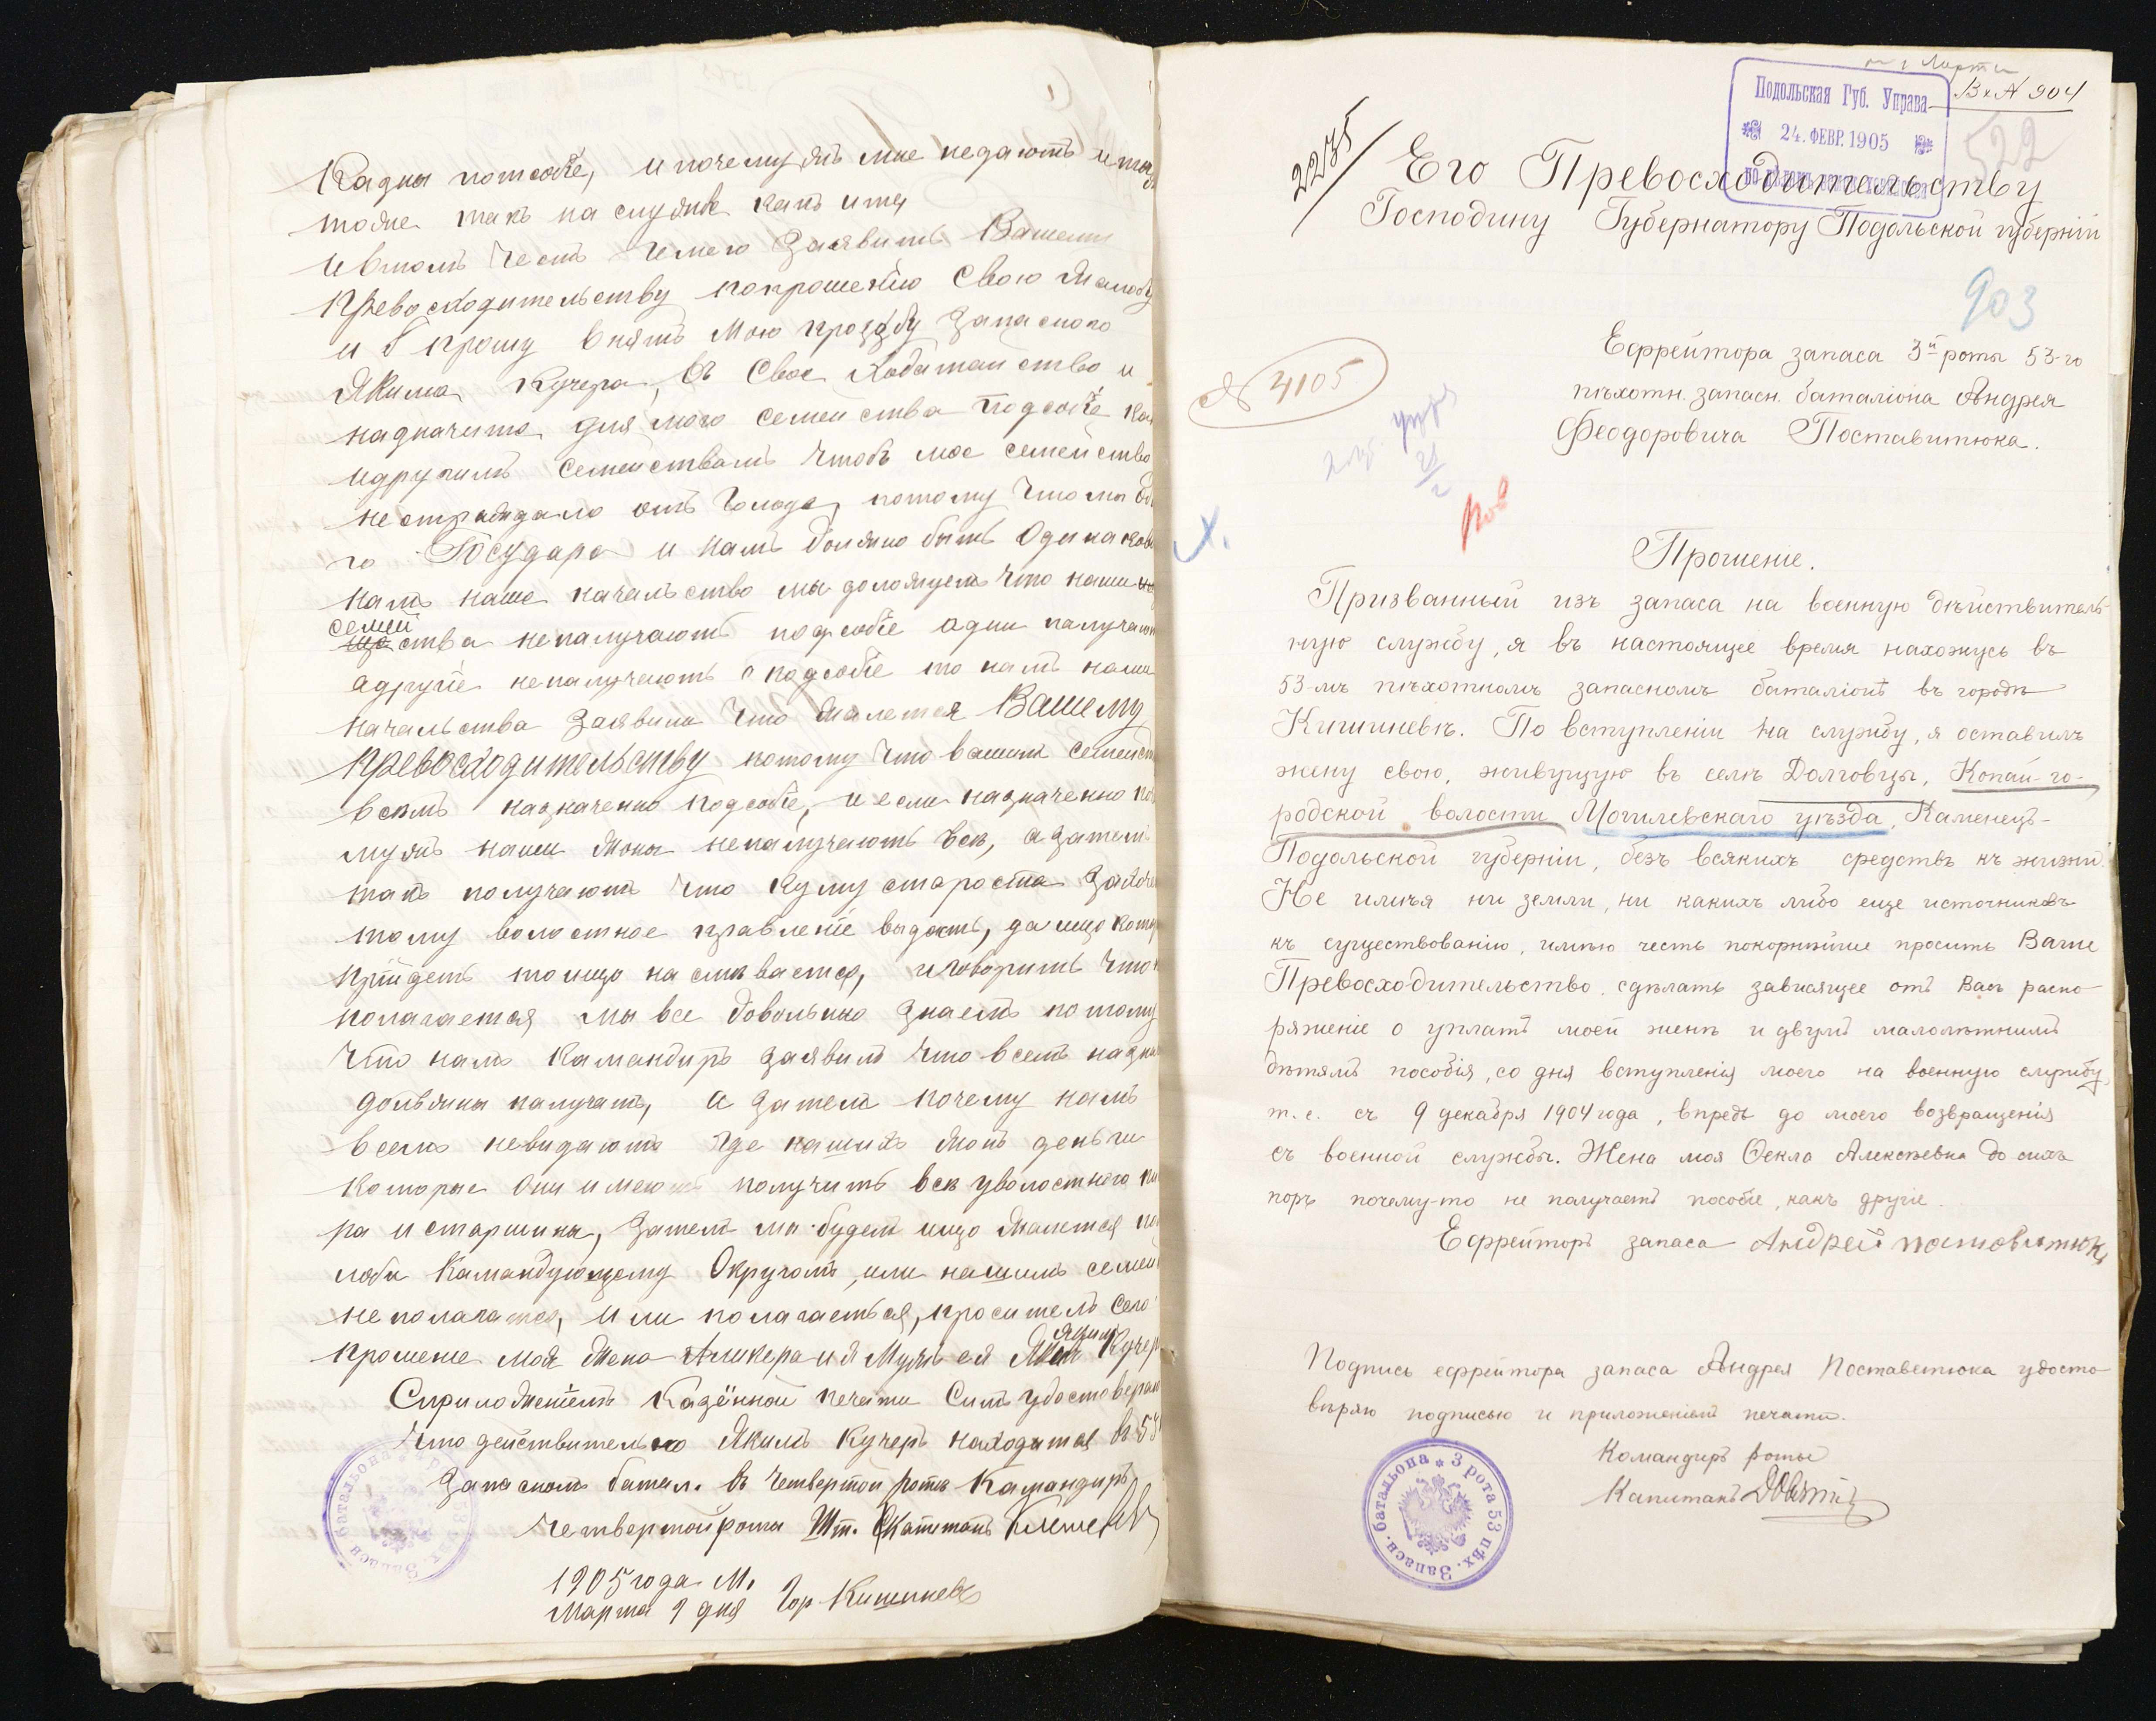 Кадны потсобіе, и почему жъ мне недаютъ
тоже такъ на службе какъ и те
и втомъ честь имею Заявить Вашему
Превосходительству попрошению Свою Жалобу
и прошу внять Мою прозбу Запасного
Якима Кучера, въ Свое Хадатайство и
надначить для мого семейства подсобіе
идругимъ семействамъ Чтобъ мое семейство
нестраждало отъ Голода, потому Что мы
го Государа и намъ должно быть Одинаково
намъ наше начальство мы доложуемъ Что наши
семей
ства неналучаютъ подсобіе адни палучают
адругіе непалучаютъ подсобіе то намъ наши
начальства Заявили Что Жалется Вашему
Превосходительству потому Что вашимъ семейст
всемъ надначенно подсобіе, и если надначенно
мужъ наши Жоны непалучаютъ все, а затемъ
такъ получаютъ Что Кому староста Захоче
тому волостное правленіе выдастъ, да ищо
прійдетъ то ищо насмѣвается, и говоритъ Что
полагается мы все довольнно Знаемъ потому
Что намъ Камандиръ Заявилъ Что всемъ надна
должны палучать, а затемъ почему намъ
всемъ невидаютъ где нашихъ Жонъ деньги
Которые Они имеютъ получить все уволостного
ра и старшины, Затемъ мы будемъ ищо Жалется
лоби Камандующему Округомъ, или нашимъ семей
не полагатся, или полагаеться, проситель Сего
Прошение моя Жена Аликера и я Мужъ ея Якимъ Кучеръ
Сприложеніемъ Казённой печати Симъ удостоверяю
Что действительно Якимъ Кучеръ находится въ 53
Запасномъ батал. въ Четвертой роте Камандиръ
Четвертой роты Шт. Капитанъ
1905 года М.
Марта 9 дня Гор Кишиневъ
Запасн. батальона
Вх № 904
Подольская Губ. Управа
24. ФЕВР. 1905
522
2235
Его Превосходительству
Господину Губернатору Подольской губерніи
903
Ефрейтора запаса 3й роты 53-го
пѣхотн. запасн. баталіона Андрея
Феодоровича Поставитюка.
№ 4105
Прошеніе.
Призванный изъ запаса на военную дѣйствитель-
ную службу, я въ настоящее время нахожусь въ
53-мъ пѣхотномъ запасномъ баталіонѣ въ городѣ
Кишиневѣ. По вступленіи на службу, я оставилъ
жену свою, живущую въ селѣ Долговцы, Копай-го-
родской волости Могилевскаго уѣзда, Каменецъ-
Подольской губерніи, безъ всякихъ средствъ къ жизни.
Не имѣя ни земли, ни какихъ либо еще источниковъ
къ существованію, имѣю честь покорнѣйше просить Ваше
Превосходительство сдѣлать зависящее отъ Васъ распо-
ряженіе о уплатѣ моей женѣ и двумъ малолѣтнимъ
дѣтямъ пособія, со дня вступленія моего на военную службу,
т. е. съ 9 декабря 1904 года, впредь до моего возвращенія
съ военной службы. Жена моя Ѳекла Алексѣевна до сихъ
поръ почему-то не получаетъ пособіе, какъ другіе.
Ефрейторъ запаса Андрей поставитюкъ
Подпись ефрейтора запаса Андрея Поставетюка удосто-
вѣряю подписью и приложеніемъ печати.
Командиръ роты
Капитанъ
3 рота 53 пѣх. Запасн. батальона